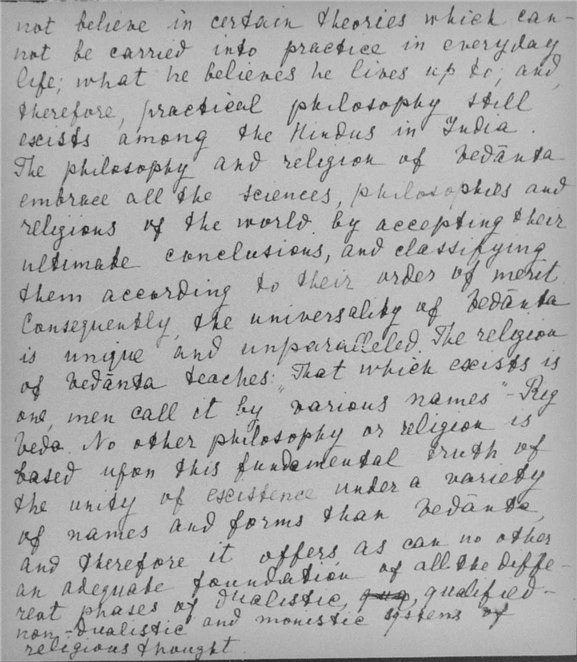 not believe in certain theories which can-
not be carried into practice in everyday
life; what he believes he lives up to; and,
therefore, practical philosophy still
exists among the Hindus in India.
The philosophy and religion of Vedānta
embrace all the sciences, philosophies and
religions of the world by accepting their
ultimate conclusions, and classifying
them according to their order of merit.
Consequently, the universality of Vedānta
is unique and unparalleled. The religion
of Vedānta teaches: "That which exists is
one, men call it by various names" - Rig
Veda. No other philosophy or religion is
based upon this fundamental truth of
the unity of existence under a variety
of names and forms than Vedānta,
and therefore it offers, as can no other
an adequate foundation of all the diffe-
rent phases of dualistic, qualified-
non-dualistic and monistic systems of
religious thought.